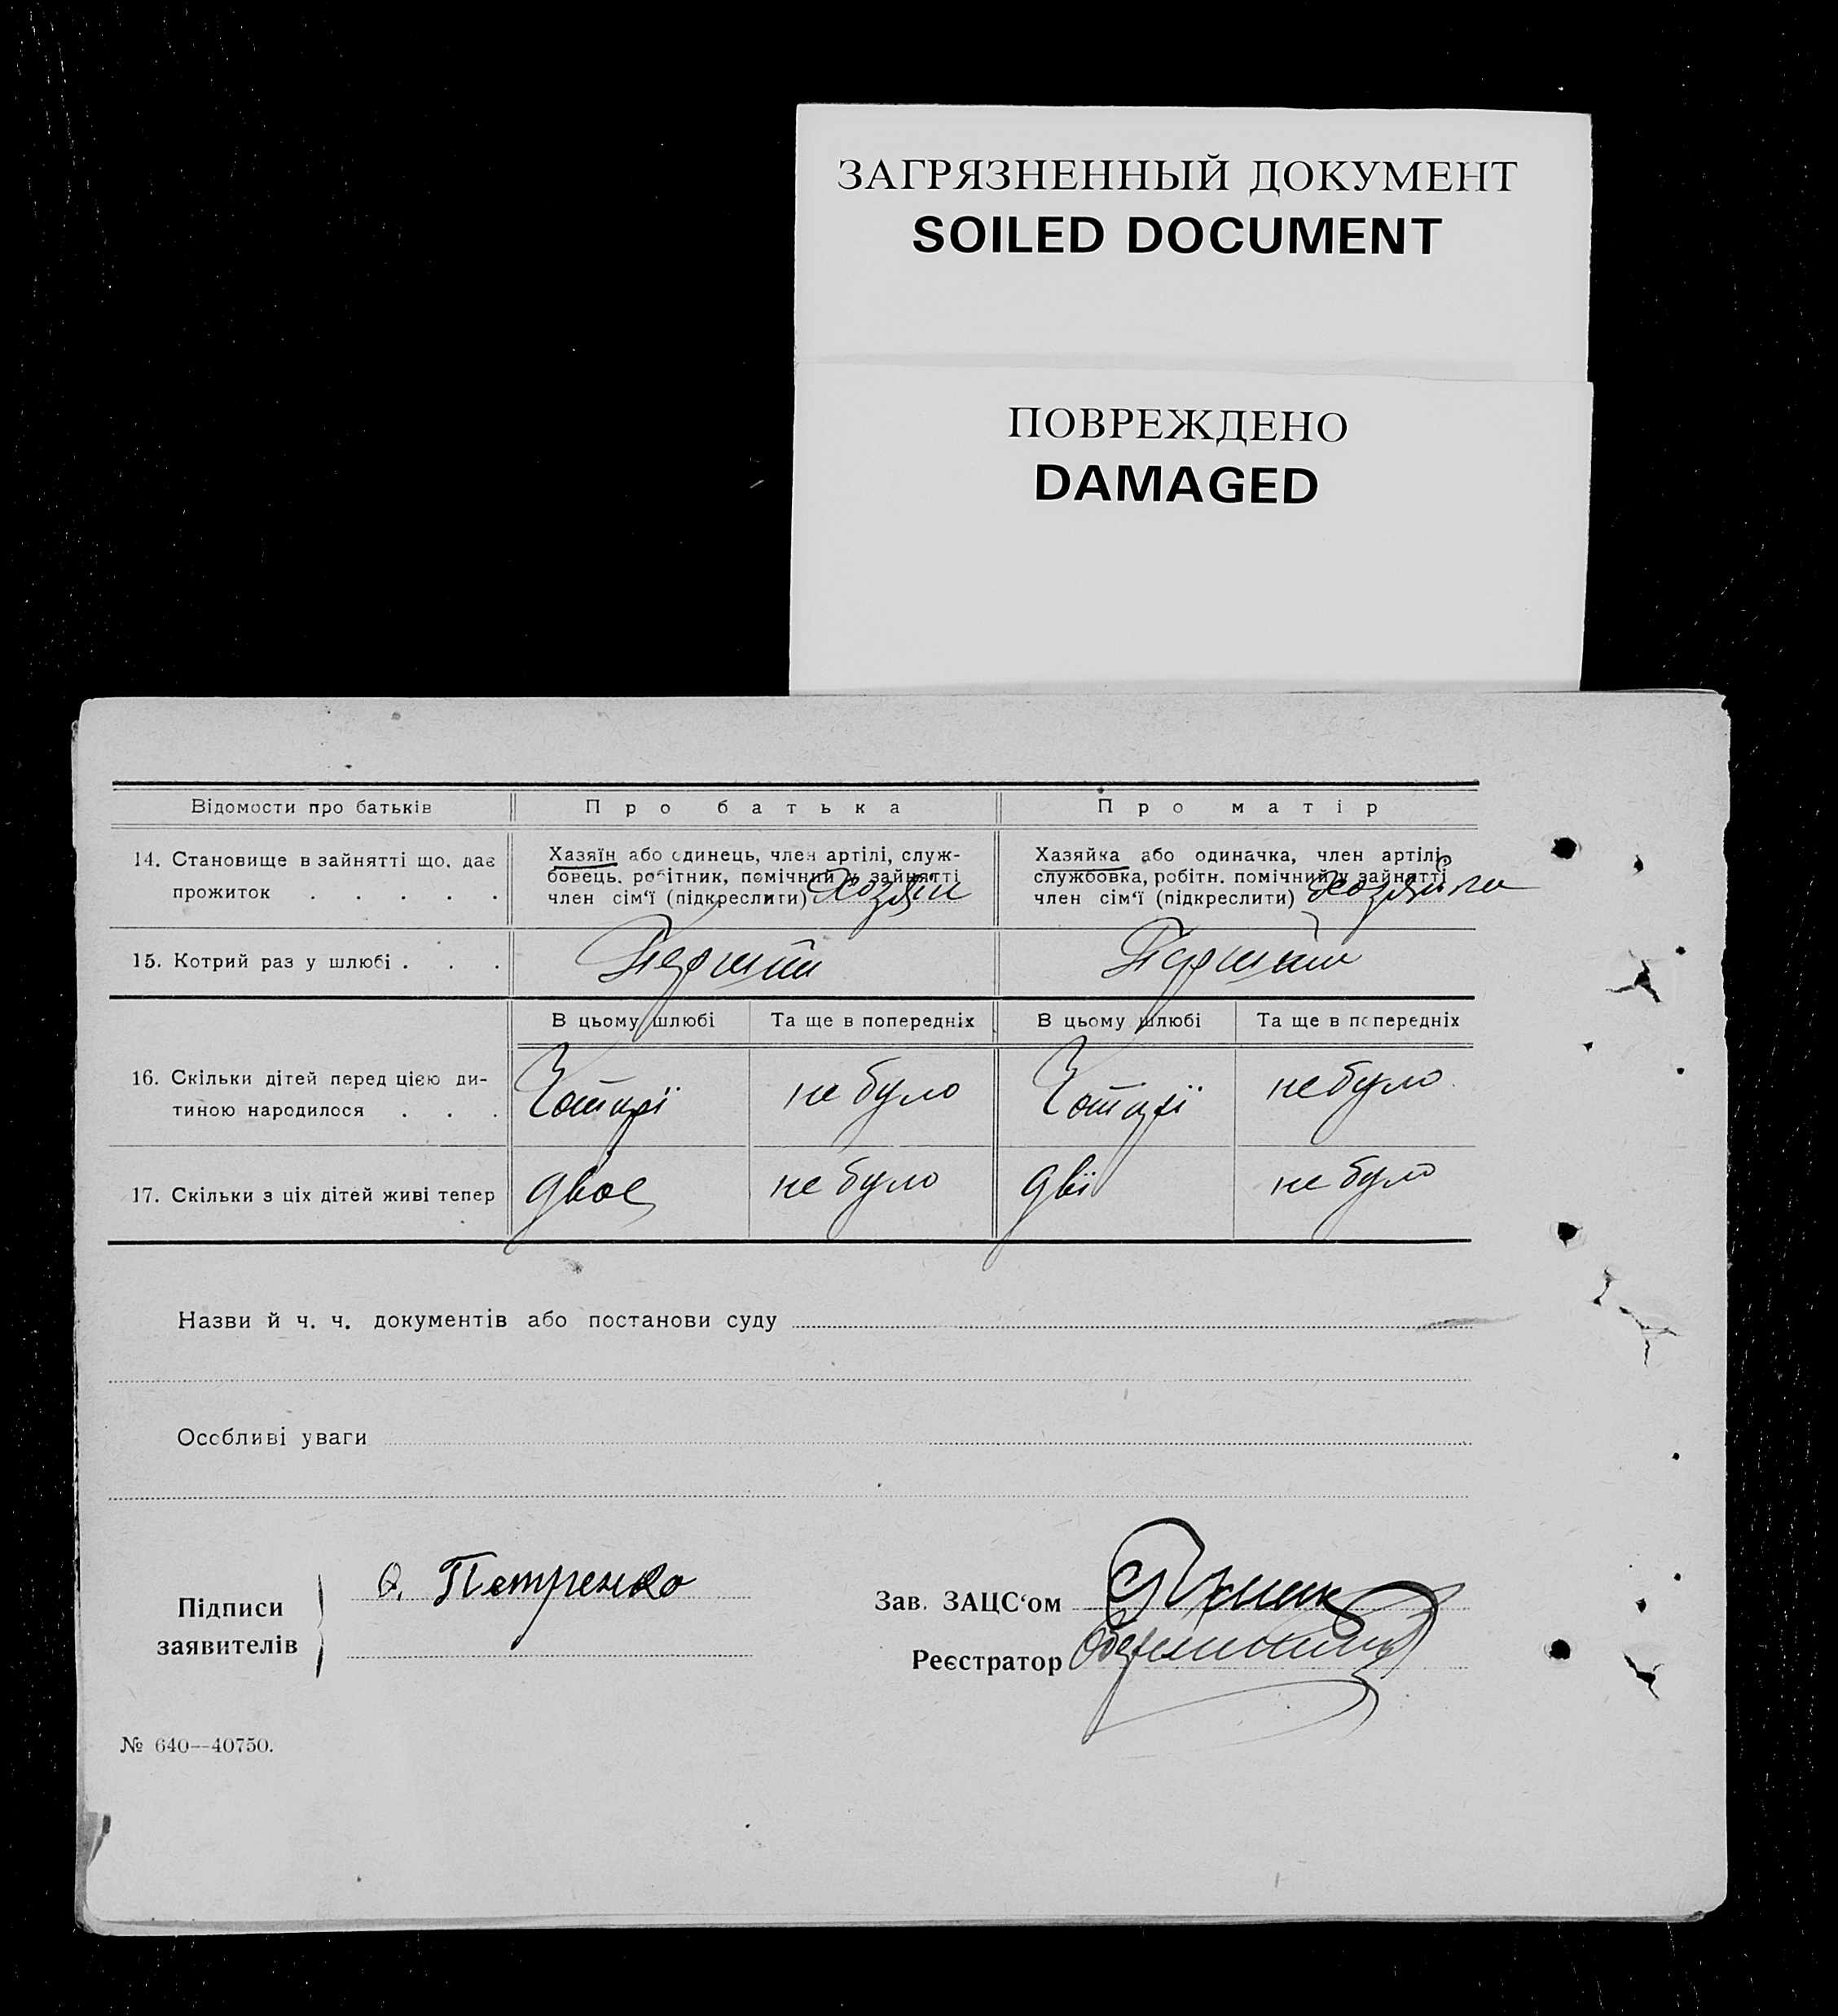 ЗАГРЯЗНЕННЫЙ ДОКУМЕНТ
SOILED DOCUMENT
ПОВРЕЖДЕНО
DAMAGED
Відомости про батьків Про батька Про матір
14. Становище в зайнятті що, дає прожиток . . . . .
Хазяїн або одинець, член артілі, служ-
бовець, робітник, помічний у зайнятті
член сім'ї (підкреслити) Хозяїн
Хазяйка або одиначка, член артілі,
службовка, робітн. помічний у зайнятті
член сім'ї (підкреслити) Хозяйка
15. Котрий раз у шлюбі . . . Перший Перший
В цьому шлюбі Та ще в попередніх В цьому шлюбі Та ще в попередніх
16. Скільки дітей перед цією ди-
тиною народилося . . . Чотирі не було Чотирі не було
17. Скільки з ціх дітей живі тепер двое не було дві не було
Назви й ч. ч. документів або постанови суду
Особливі уваги
Підписи
заявителів
О. Петренко
Зав. ЗАЦС'ом
Реєстратор
№ 640—40750.